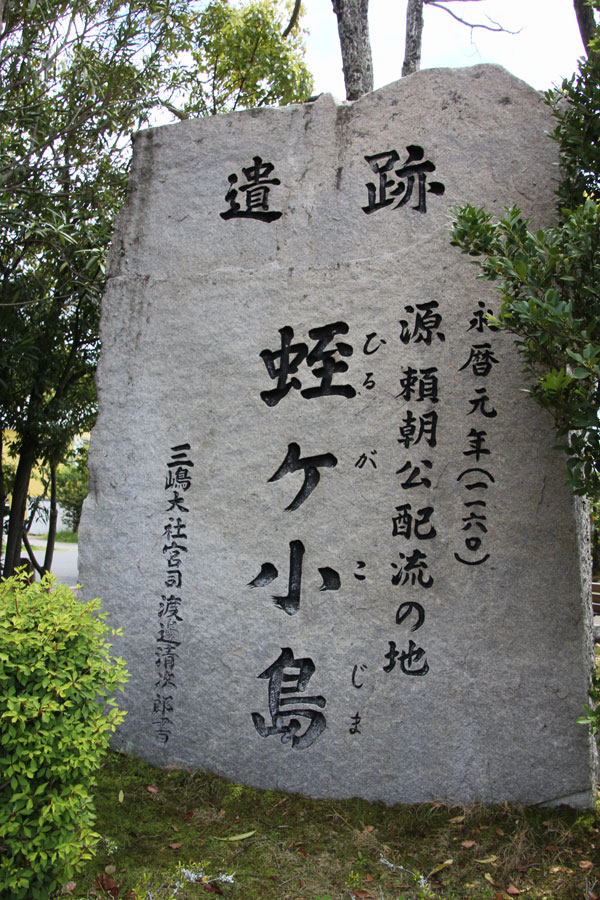 遺跡
永暦元年(一一六〇)
源頼朝公配流の地
ひるがこじま
蛭ヶ小島
三嶋大社宮司 渡邉清次郎書